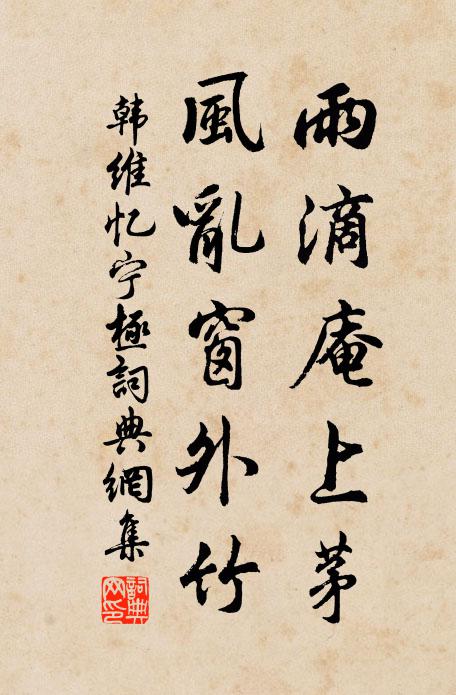 雨滴庵上茅
風亂窗外竹
韩维忆宁極詞典網集
詞典網印